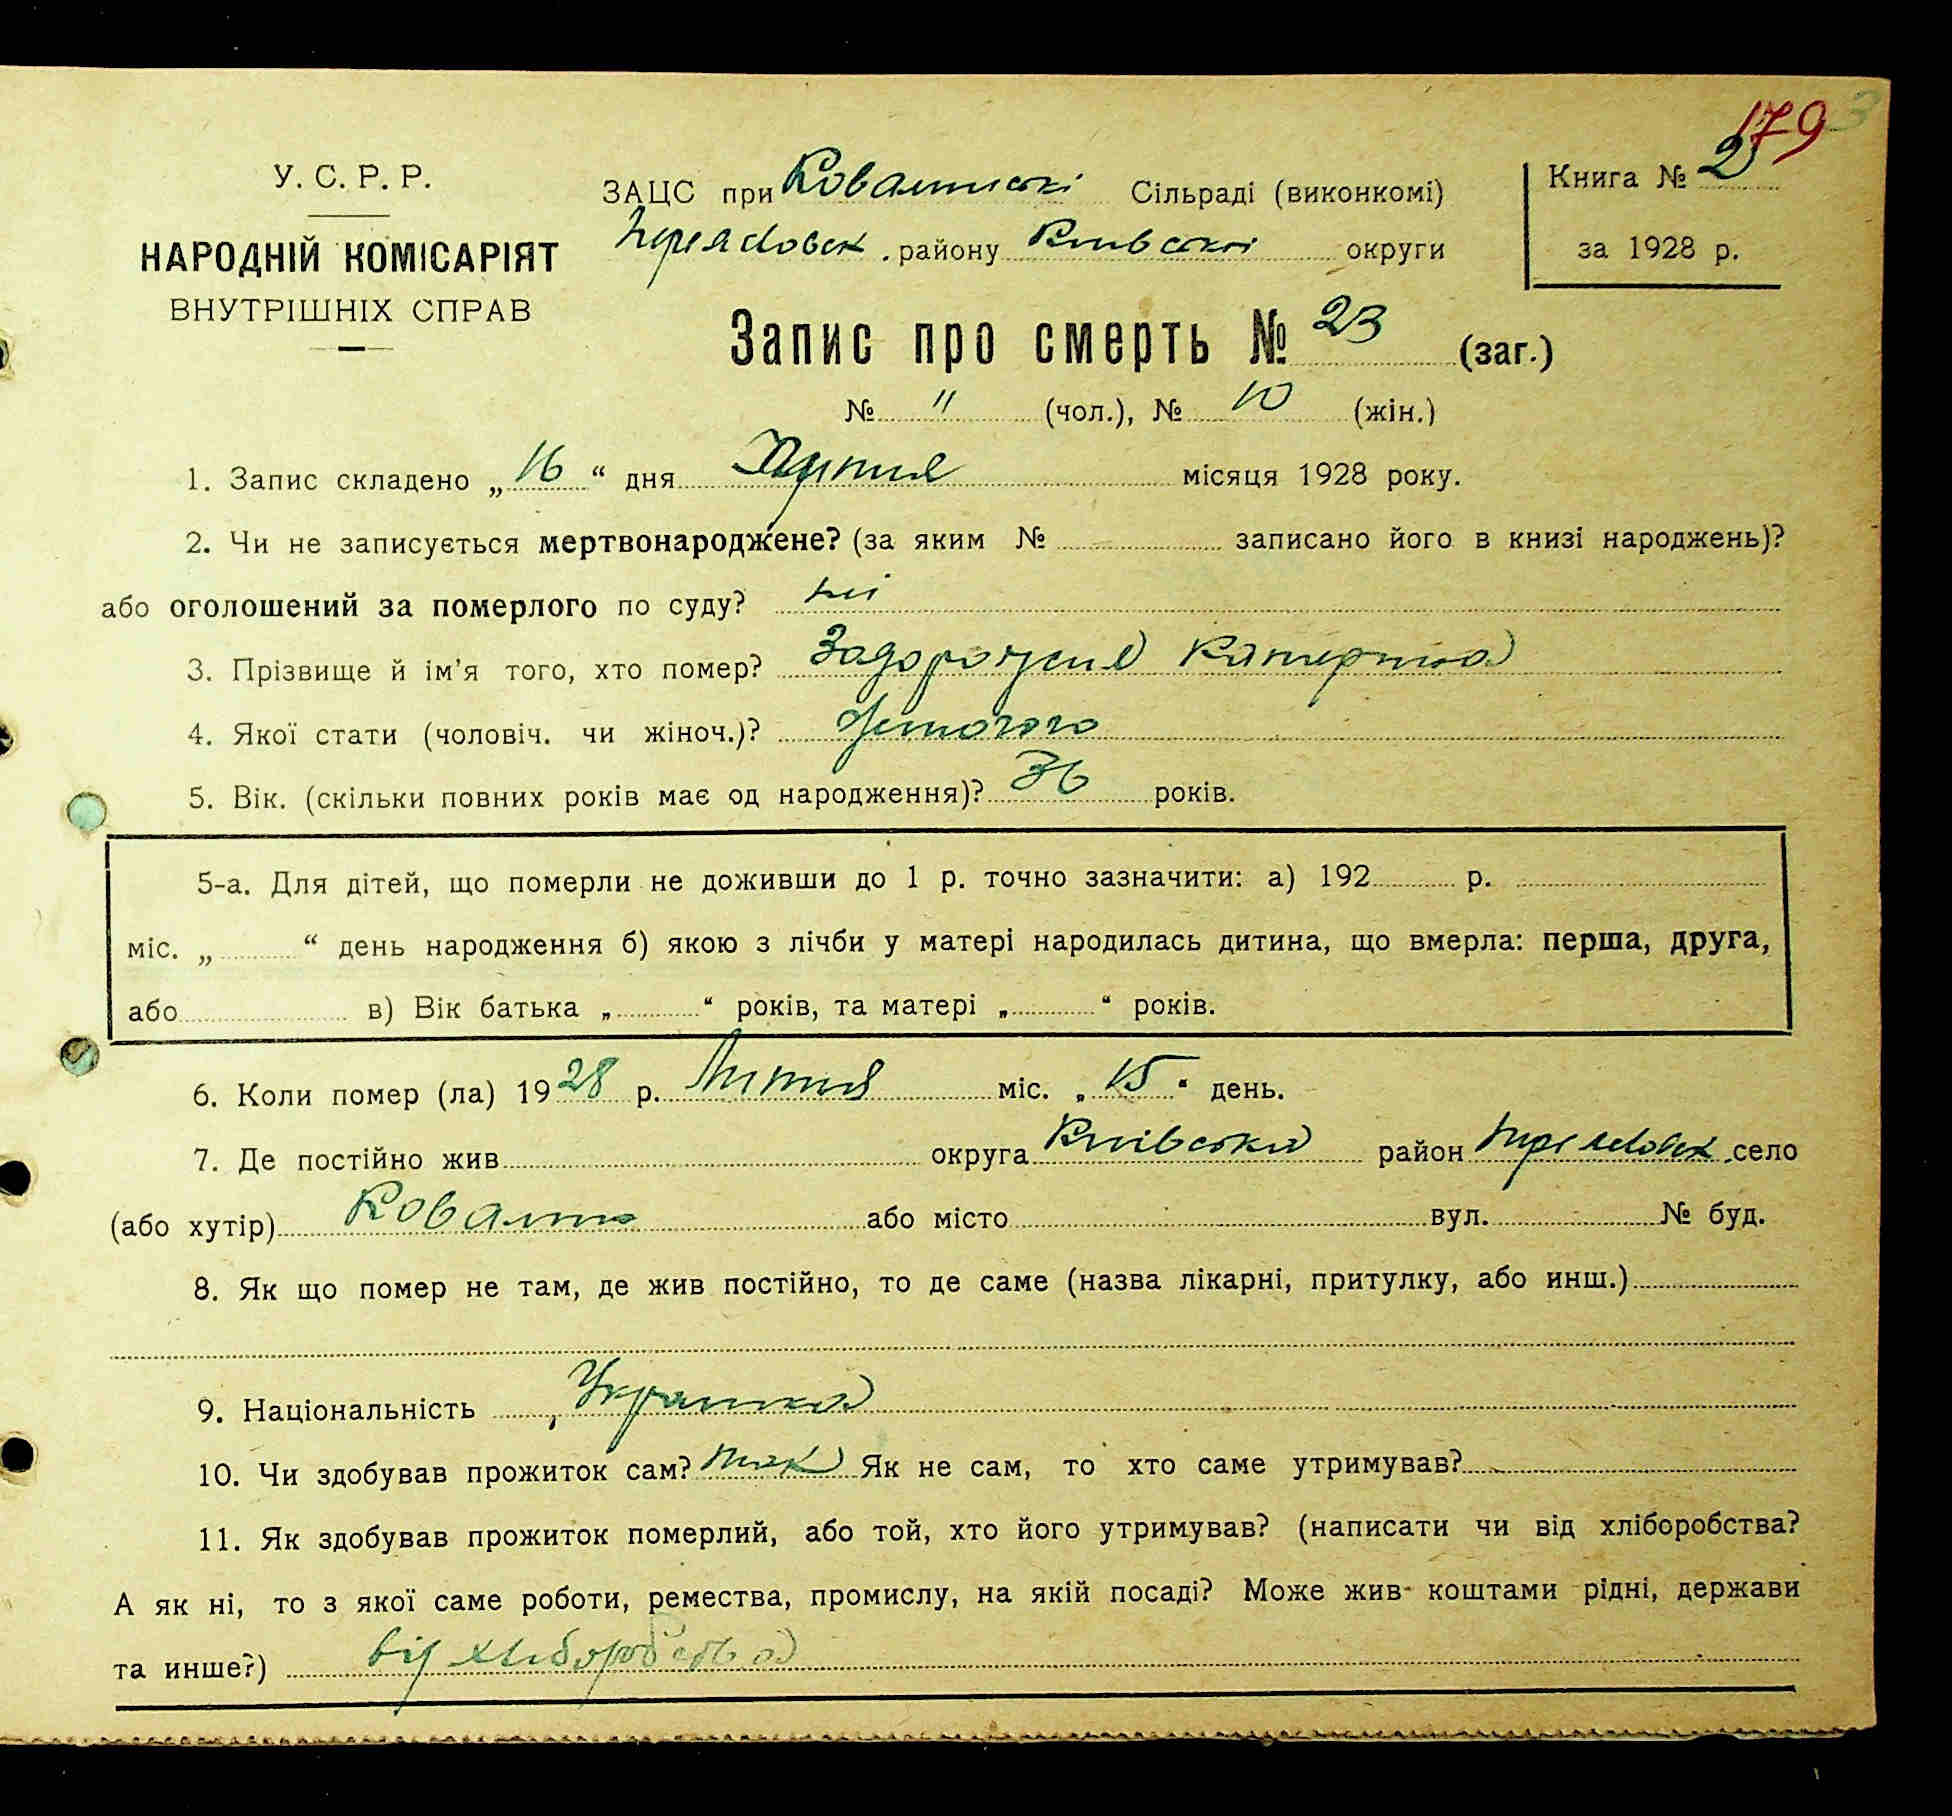 179
У. С. Р. Р.
НАРОДНІЙ КОМІСАРІЯТ
ВНУТРІШНІХ СПРАВ
ЗАЦС при Ковалинські Сільраді (виконкомі)
Переясловск. району Київської округи
Книга № 2
за 1928 р.
Запис про смерть № 23 (заг.)
№ " (чол.), № 10 (жін.)
1. Запис складено „16“ дня Липня місяця 1928 року.
2. Чи не записується мертвонароджене? (за яким № записано його в книзі народжень)?
або оголошений за померлого по суду? ні
3. Прізвище й ім'я того, хто помер? Задорожня Катерина
4. Якої стати (чоловіч. чи жіноч.)? Жіночого
5. Вік. (скільки повних років має од народження)? 36 років.
5-а. Для дітей, що померли не доживши до 1 р. точно зазначити: а) 192 р.
міс. „ “ день народження б) якою з лічби у матері народилась дитина, що вмерла: перша, друга,
або в) Вік батька „ “ років, та матері „ “ років.
6. Коли помер (ла) 1928 р. Липня міс. „15“ день.
7. Де постійно жив округа Київська район Переясловск. село
(або хутір) Ковалин або місто вул. № буд.
8. Як що помер не там, де жив постійно, то де саме (назва лікарні, притулку, або инш.)
9. Національність Українка
10. Чи здобував прожиток сам? так Як не сам, то хто саме утримував?
11. Як здобував прожиток померлий, або той, хто його утримував? (написати чи від хліборобства?
А як ні, то з якої саме роботи, ремества, промислу, на якій посаді? Може жив коштами рідні, держави
та инше?) від хліборобства